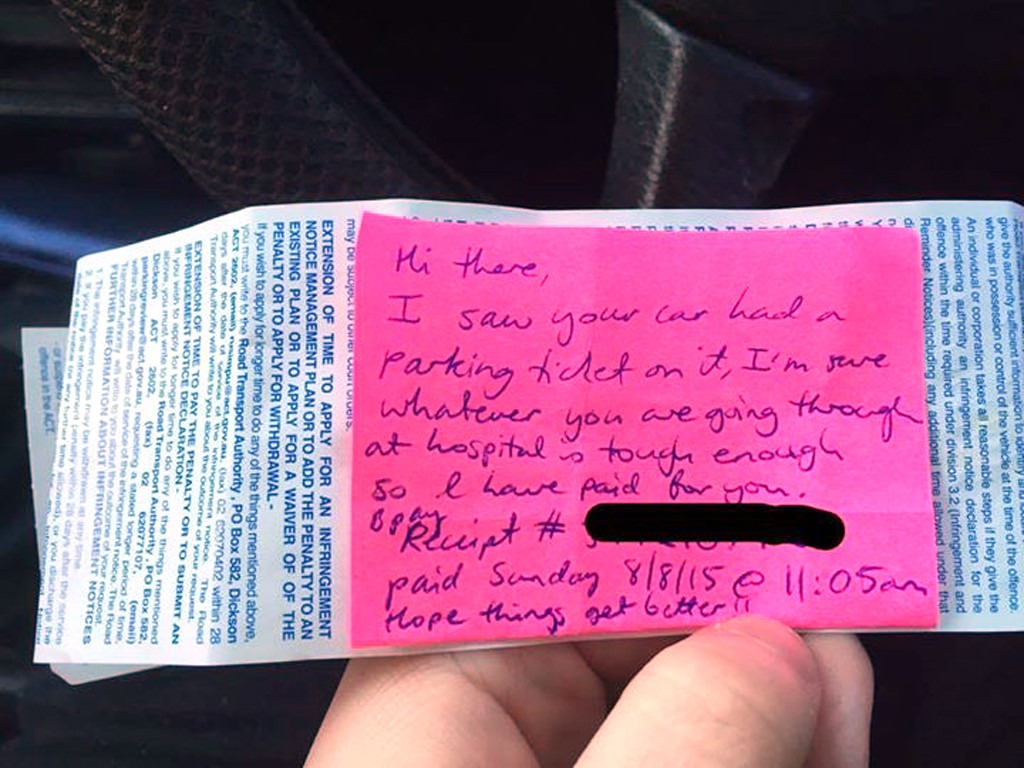 Hi there,
I saw your car had a
parking ticket on it, I'm sure
whatever you are going through
at hospital is tough enough
so I have paid for you.
Bpay
Receipt #
paid Sunday 8/8/15 @ 11:05am
Hope things get better!!
give the authority sufficient information to identify and
who was in possession or control of the vehicle at the
An individual or corporation takes all reasonable steps if they give the
administering authority an infringement notice declaration for the
offence within the time required under division 3.2 (Infringement and
Reminder Notices)(including any additional time allowed under that
may be subject to other court orders.
EXTENSION OF TIME TO APPLY FOR AN INFRINGEMENT
NOTICE MANAGEMENT PLAN OR TO ADD THE PENALTY TO AN
EXISTING PLAN OR TO APPLY FOR A WAIVER OF THE
PENALTY OR TO APPLY FOR WITHDRAWAL -
If you wish to apply for longer time to do any of the things mentioned above,
you must write to the Road Transport Authority, PO Box 582, Dickson
ACT 2602, (email) (fax) 02 62070402 within 28
days after the date of service of the infringement notice. The Road
Transport Authority will write to you about the outcome of your request.
EXTENSION OF TIME TO PAY THE PENALTY OR TO SUBMIT AN
INFRINGEMENT NOTICE DECLARATION -
If you wish to apply for longer time to do any of the things mentioned
above, you must write to the Road Transport Authority, PO Box 582,
Dickson ACT 2602, (fax) 02 62077107, (email)
within 28 days after the date of service of the infringement notice. The Road
Transport Authority will write to you about the outcome of your request.
FURTHER INFORMATION ABOUT INFRINGEMENT NOTICES
1. The infringement notice may be withdrawn at any time
offence in the ACT.